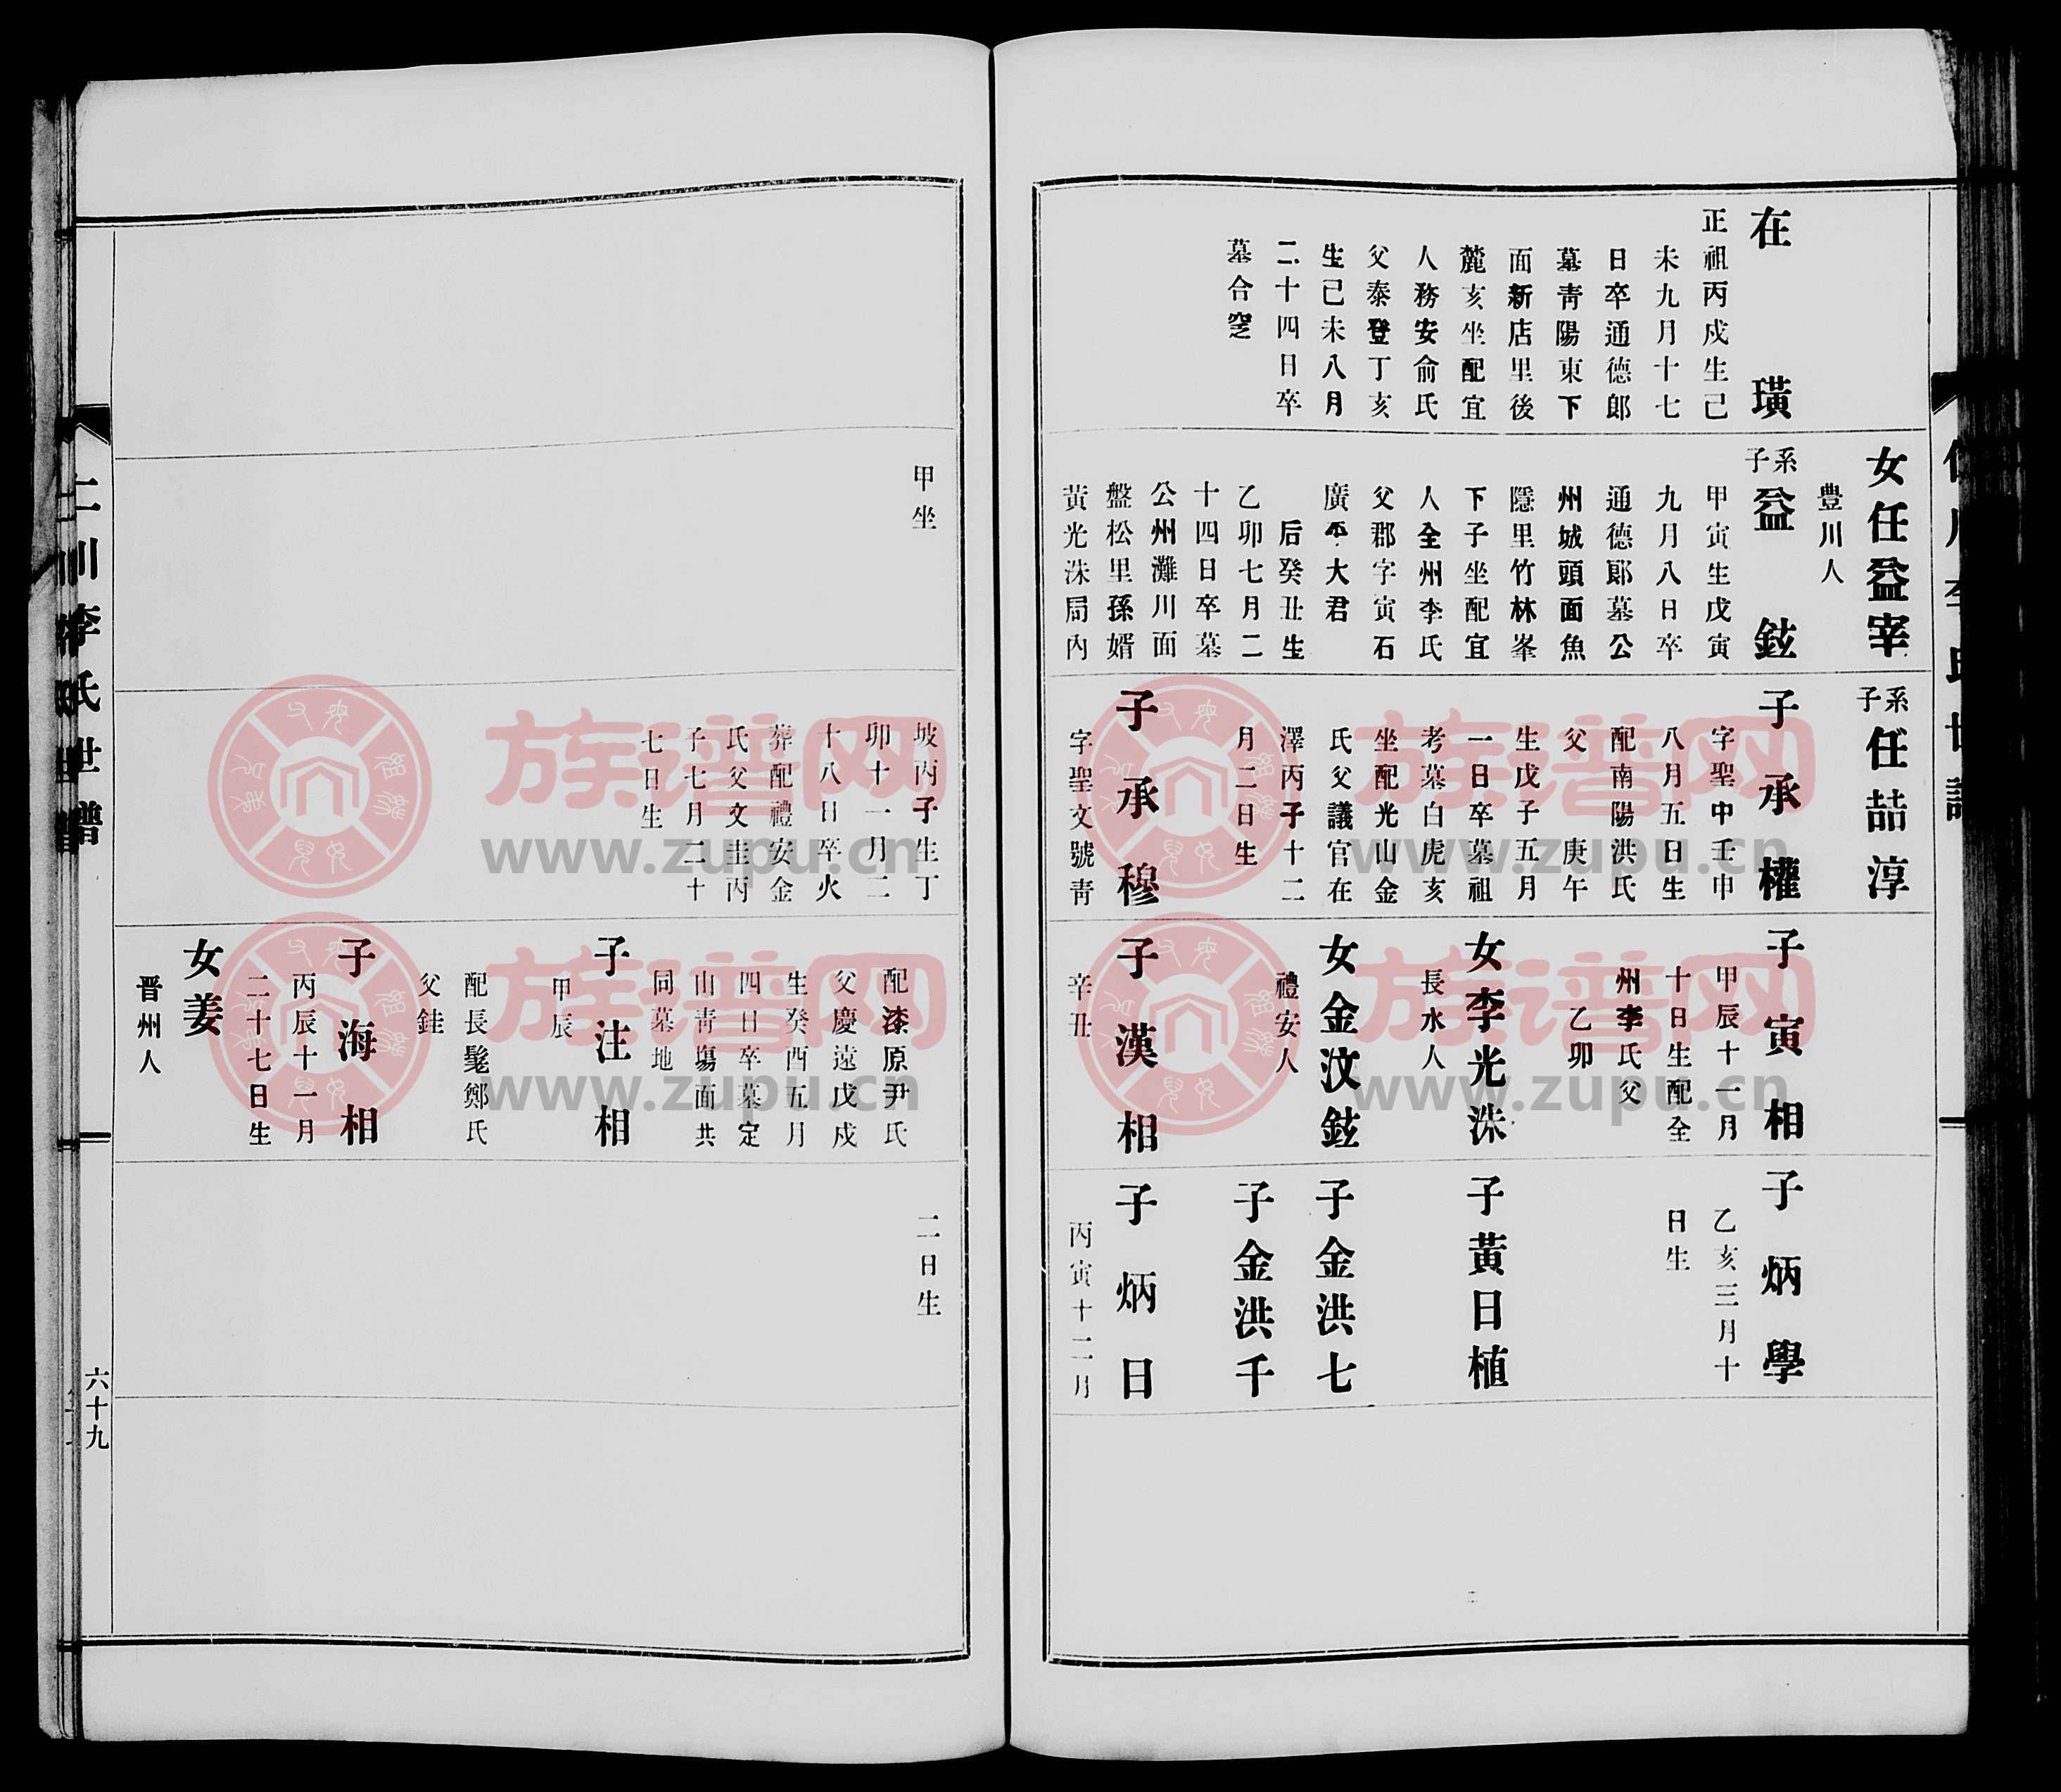 在璜
正祖丙戍生己
未九月十七
日卒通德郞
墓靑陽東下
面新店里後
麓亥坐配宜
人務安俞氏
父泰登丁亥
生己未八月
二十四日卒
墓合窆
女任益宰
豊川人
系子益鉉
甲寅生戊寅
九月八日卒
通德郞墓公
州城頭面魚
隱里竹林峯
下子坐配宜
人全州李氏
父郡字寅石
廣平大君
后癸丑生
乙卯七月二
十四日卒墓
公州灘川面
盤松里孫婿
黃光洙局內
系子任喆淳
子承權
字聖中壬申
八月五日生
配南陽洪氏
父 庚午
生戊子五月
一日卒墓祖
考墓白虎亥
坐配光山金
氏父議官在
澤丙子十二
月二日生
子承穆
字聖文號靑
子寅相
甲辰十一月
十日生配全
州李氏父
乙卯
女李光洙
長水人
女金汶鉉
禮安人
子漢相
辛丑
子炳學
乙亥三月十
日生
子黃日植
子金洪七
子金洪千
子炳日
丙寅十二月
甲坐
坡丙子生丁
卯十一月二
十八日卒火
葬配禮安金
氏父文圭丙
子七月二十
七日生
配漆原尹氏
父慶遠戊戍
生癸酉五月
四日卒墓定
山靑塲面共
同墓地
子注相
甲辰
配長髦鄭氏
父銈
子海相
丙辰十一月
二十七日生
女姜
晋州人
二日生
仁川李氏世譜
六十九
族谱网
www.zupu.cn
族谱网
www.zupu.cn
族谱网
www.zupu.cn
族谱网
www.zupu.cn